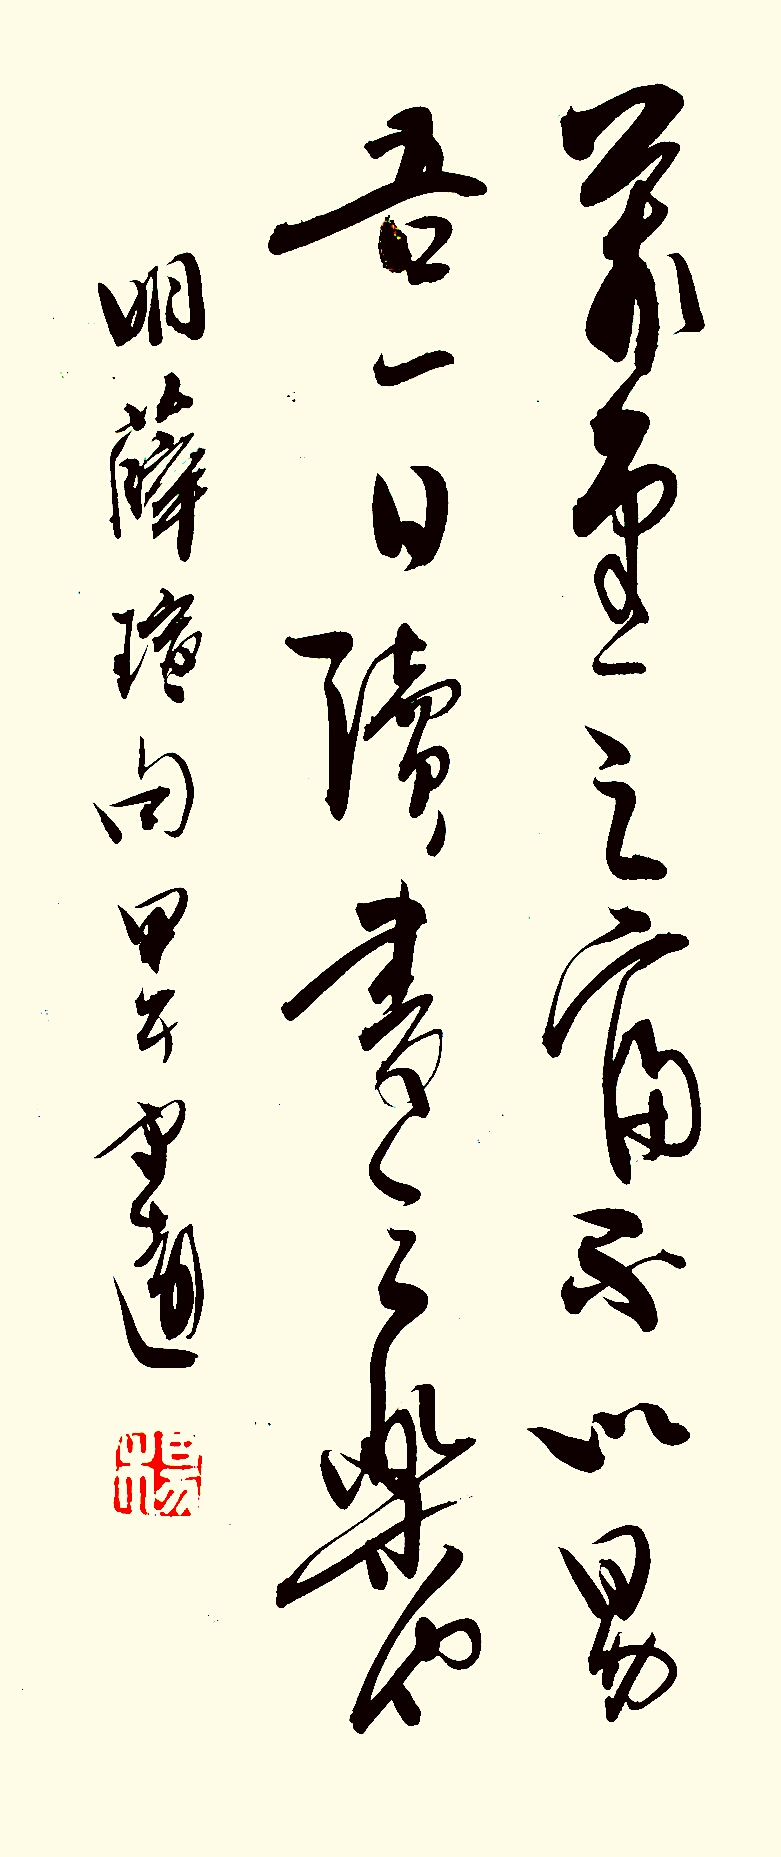 萬金之富不以易
吾一日讀書之樂也
明薛瑄句甲午
楊